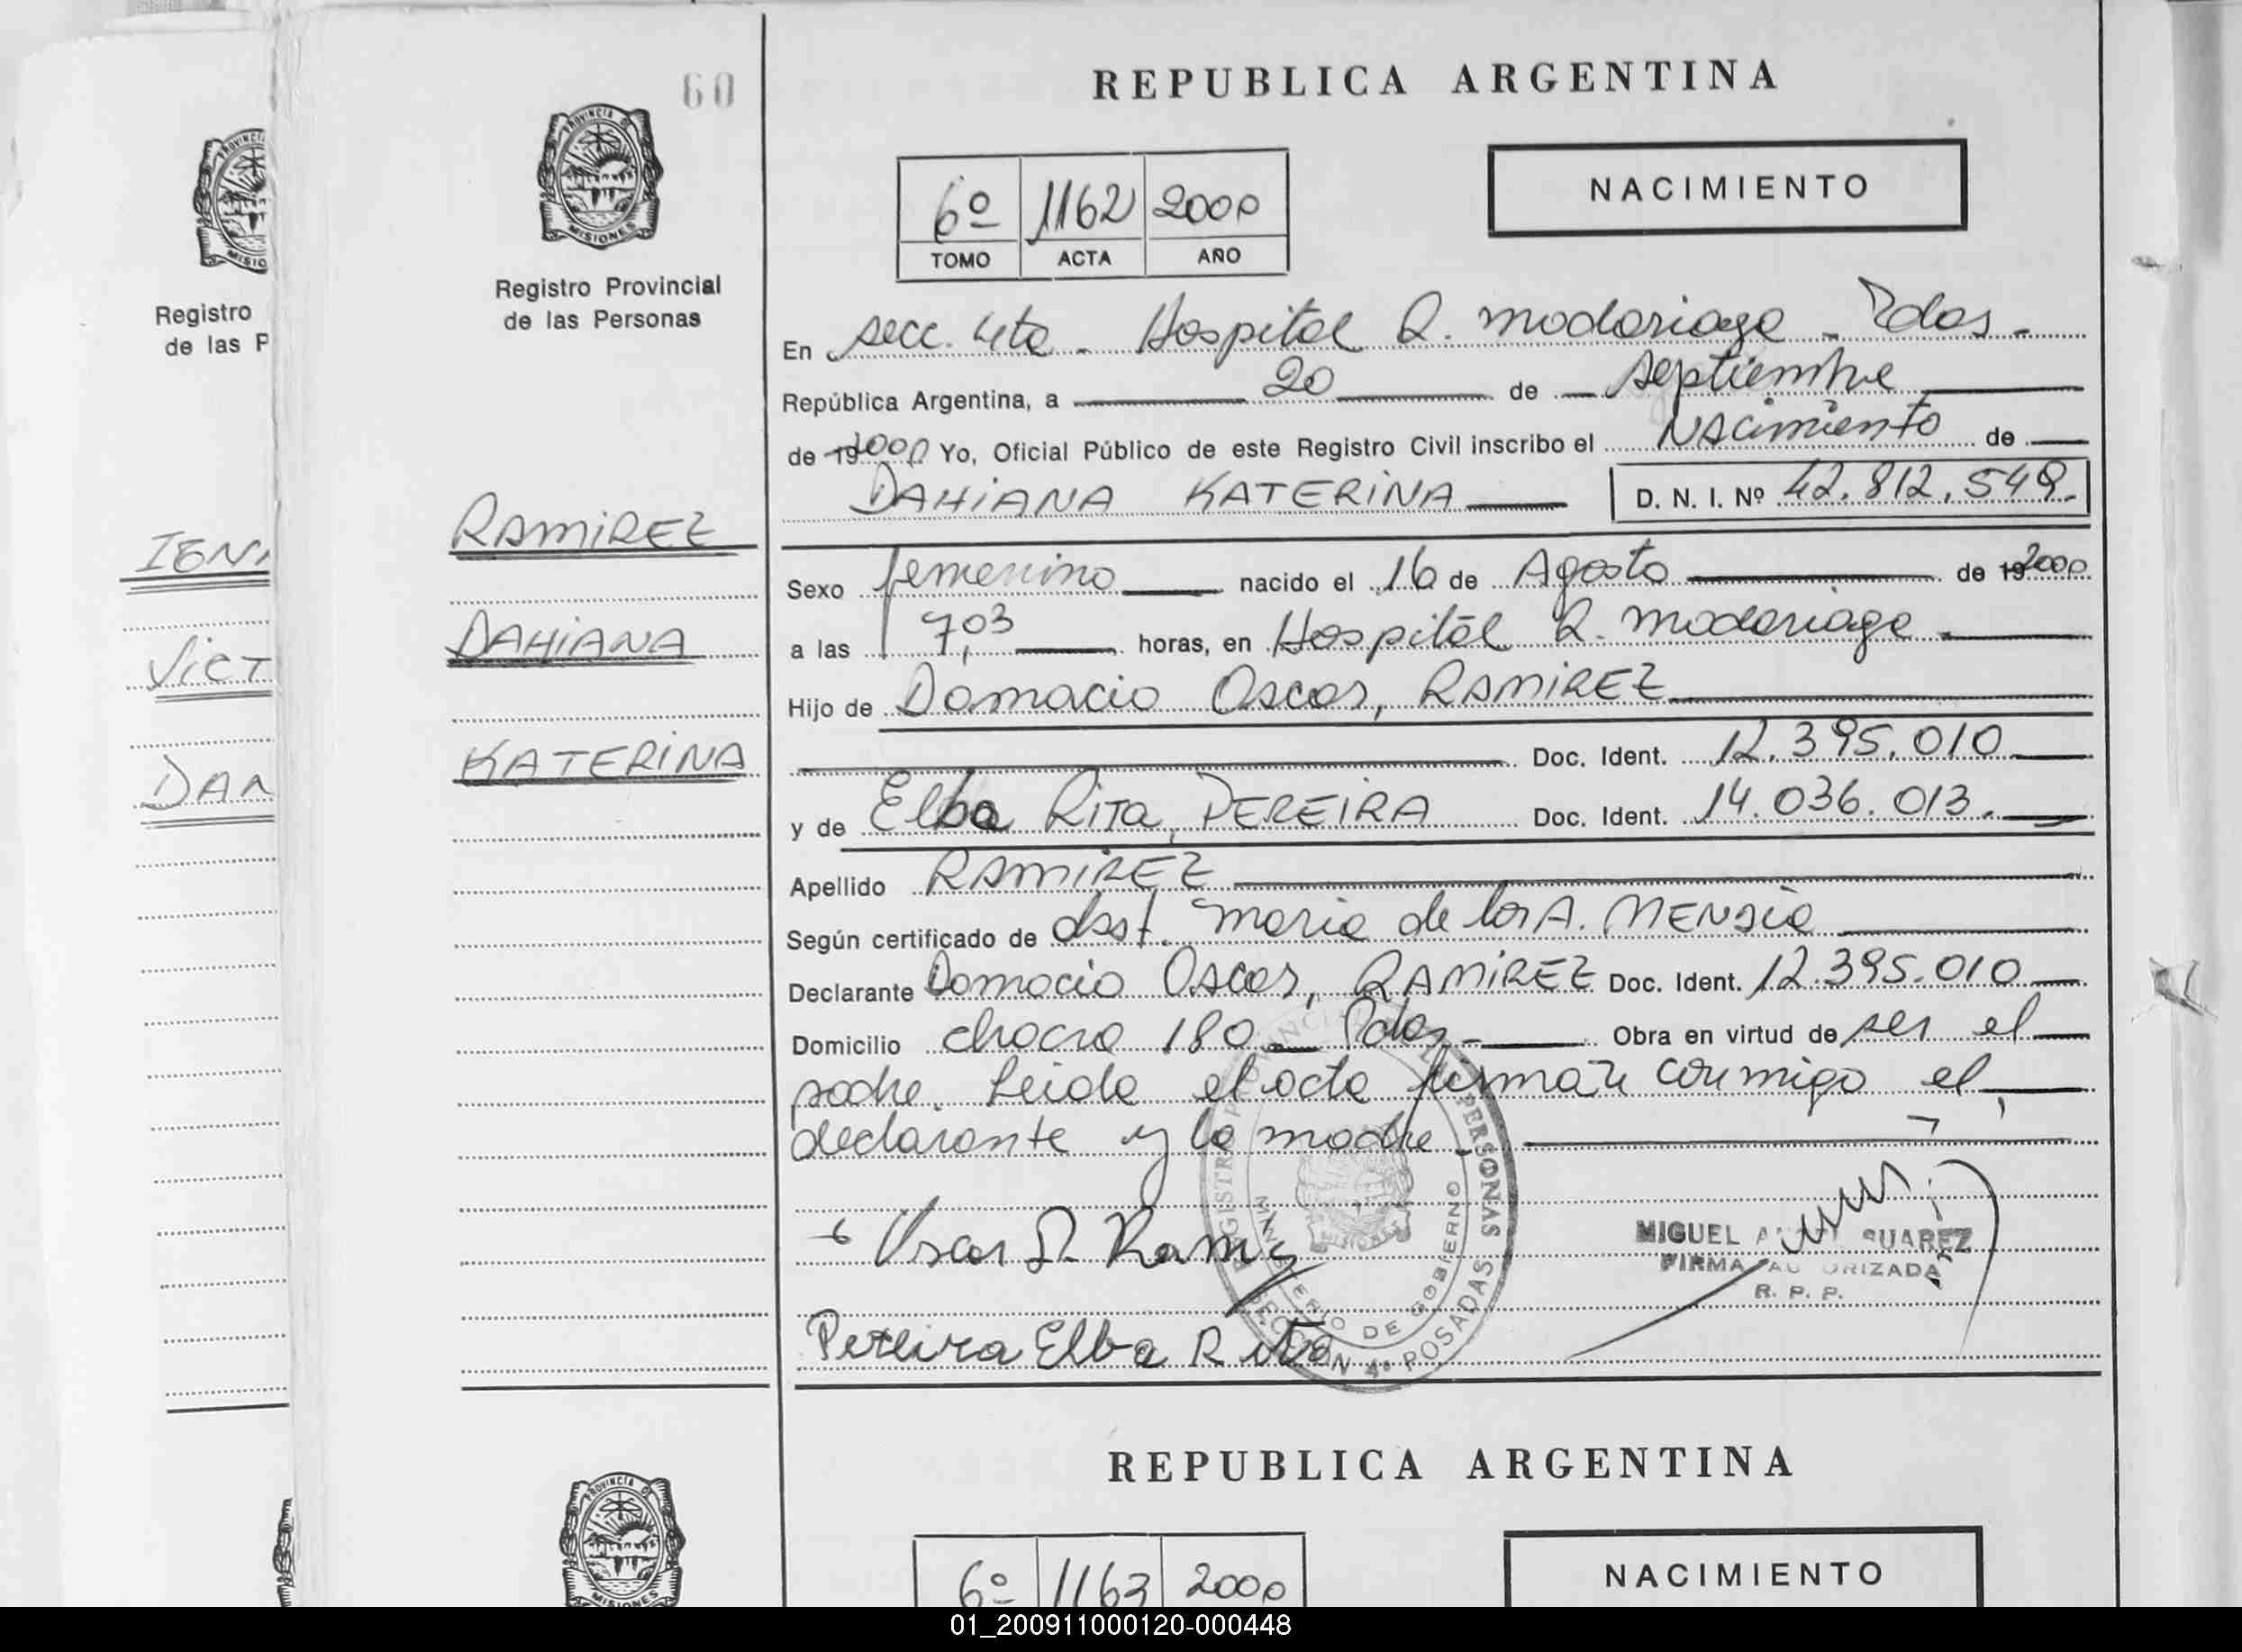 60
REPUBLICA ARGENTINA
PROVINCIA DE
MISIONES
Registro Provincial
de las Personas
6º 1162 2000
TOMO ACTA AÑO
NACIMIENTO
En secc. 4ta - Hospital R. Madariaga - Pdas -
República Argentina, a 20 de septiembre
de 19 2000 Yo, Oficial Público de este Registro Civil inscribo el Nacimiento de
DAHIANA KATERINA D. N. I. Nº 42.812.549.
RAMIREZ
DAHIANA
KATERINA
Sexo femenino nacido el 16 de Agosto de 19 2000
a las 7,03 horas, en Hospital R. Madariaga.
Hijo de Damacio Oscar, RAMIREZ
Doc. Ident. 12.395.010
y de Elba Rita, PEREIRA Doc. Ident. 14.036.013.
Apellido RAMIREZ
Según certificado de obst. Maria de los A. MENSIA
Declarante Damacio Oscar, RAMIREZ Doc. Ident. 12.395.010
Domicilio chacra 180 - Pdas - Obra en virtud de ser el
padre. Leida el acta firman conmigo el
declarante y la madre.
Oscar D. Rami
Pereira Elba Rita
MIGUEL SUAREZ
FIRMA AUTORIZADA
R. P. P.
REGISTRO PROVINCIAL DE LAS PERSONAS
MINISTERIO DE GOBIERNO
SECCION 4ª POSADAS
REPUBLICA ARGENTINA
PROVINCIA DE
MISIONES
6º 1163 2000
NACIMIENTO
Registro
de las P
VICT
DAN
01_200911000120-000448